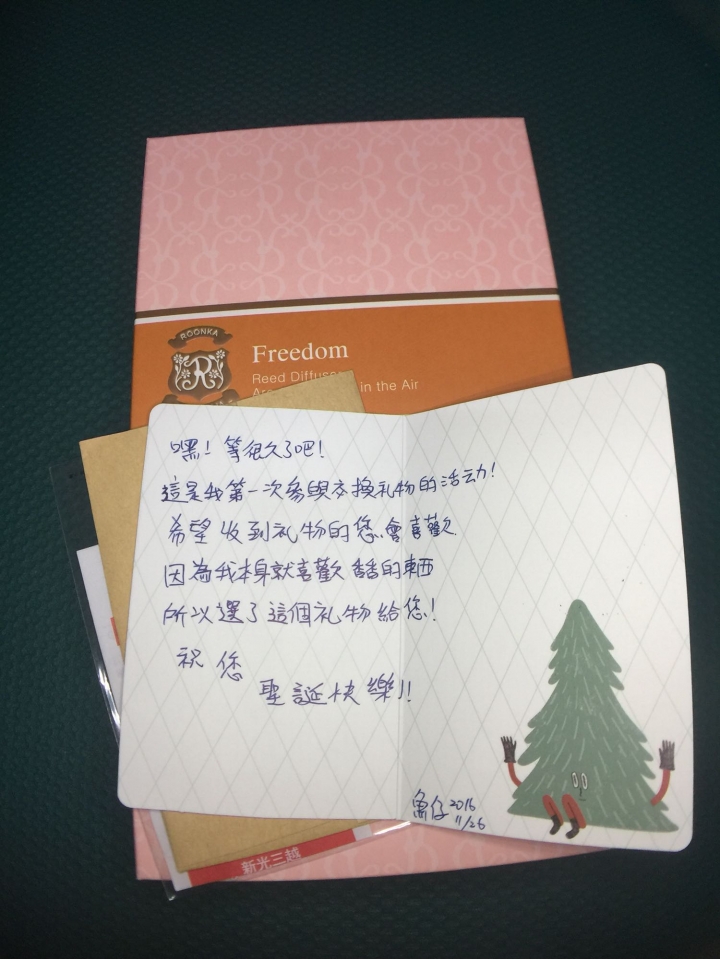 ROONKA
R
Freedom
Reed
in the Air
嘿! 等很久了吧!
這是我第一次參與交換礼物的活动!
希望收到礼物的您會喜歡
因為我本身就喜歡香香的東西
所以選了這個礼物給您!
祝 您
聖誕快樂!!
魚仔 2016
11/26
新光三越